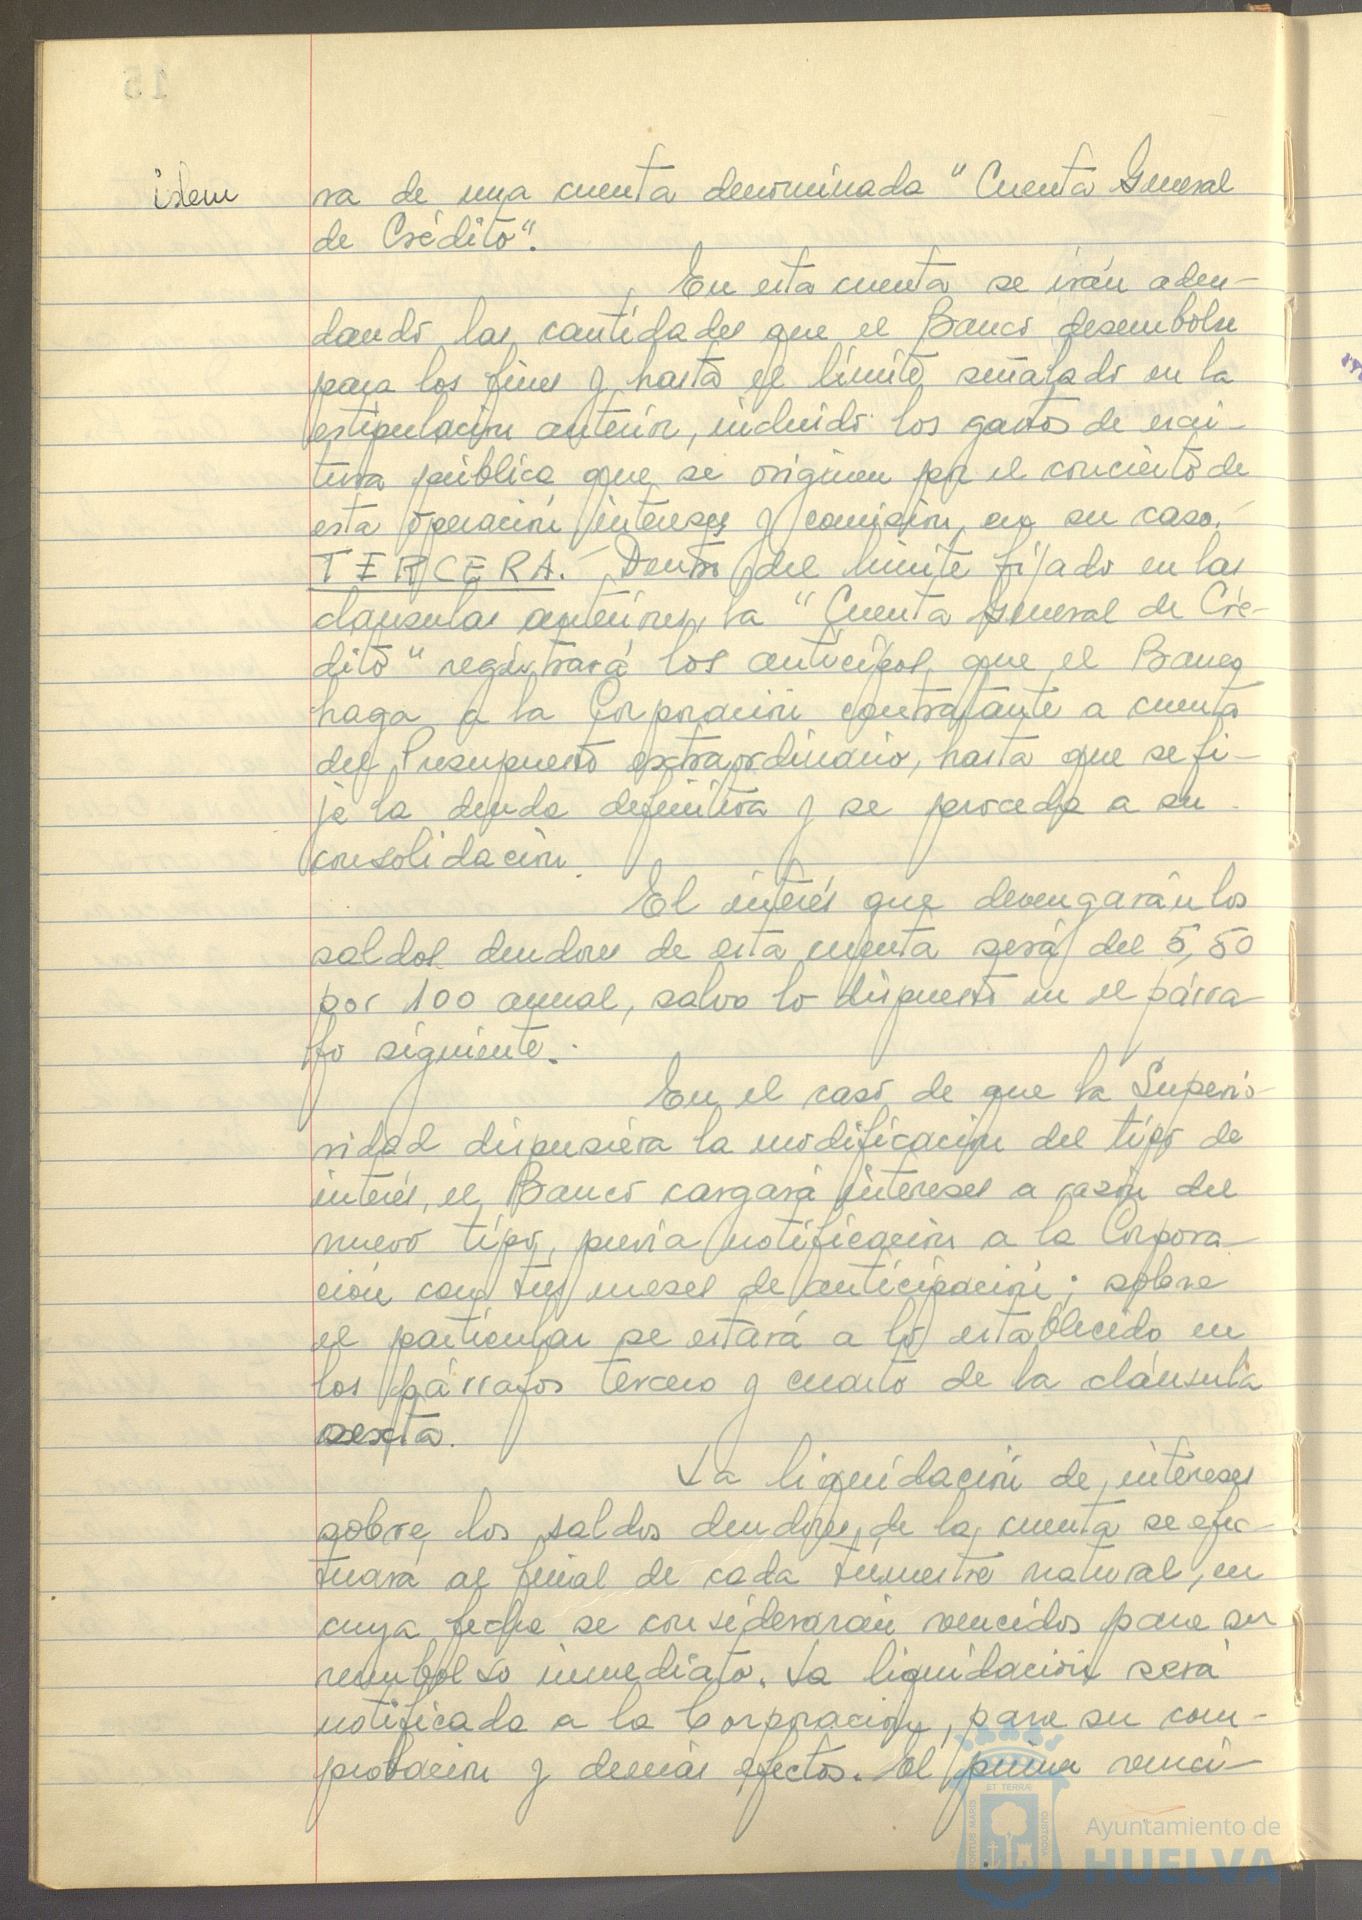 idem
ra de una cuenta denominada "Cuenta General
de Crédito".
En esta cuenta se irán adeu-
dando las cantidades que el Banco desembolse
para los fines y hasta el límite señalado en la
estipulación anterior, incluido los gastos de escri-
tura pública que se originen por el concierto de
esta operación intereses y comisión, en su caso.-
TERCERA.- Dentro del límite fijado en las
clausulas anteriores, la "Cuenta General de Cré-
dito" registrará los anticipos que el Banco
haga a la Corporación contratante a cuenta
del Presupuesto extraordinario, hasta que se fi-
je la deuda definitiva y se proceda a su
consolidación.
El interés que devengarán los
saldos deudores de esta cuenta será del 5,50
por 100 anual, salvo lo dispuesto en el párra-
fo siguiente.-
En el caso de que la Superio-
ridad dispusiera la modificación del tipo de
interés, el Banco cargará intereses a razón del
nuevo tipo, previa notificación a la Corpora-
ción con tres meses de anticipación; sobre
el particular se estará a lo establecido en
los párrafos tercero y cuarto de la cláusula
sexta.
La liquidación de intereses
sobre los saldos deudores de la cuenta se efec-
tuará al final de cada trimestre natural, en
cuya fecha se considerarán vencidos para su
reembolso inmediato. La liquidación será
notificada a la Corporación, para su com-
probación y demás efectos. El primer venci-
PORTUS MARIS
ET TERRAE
CUSTODIA
Ayuntamiento de
HUELVA
15